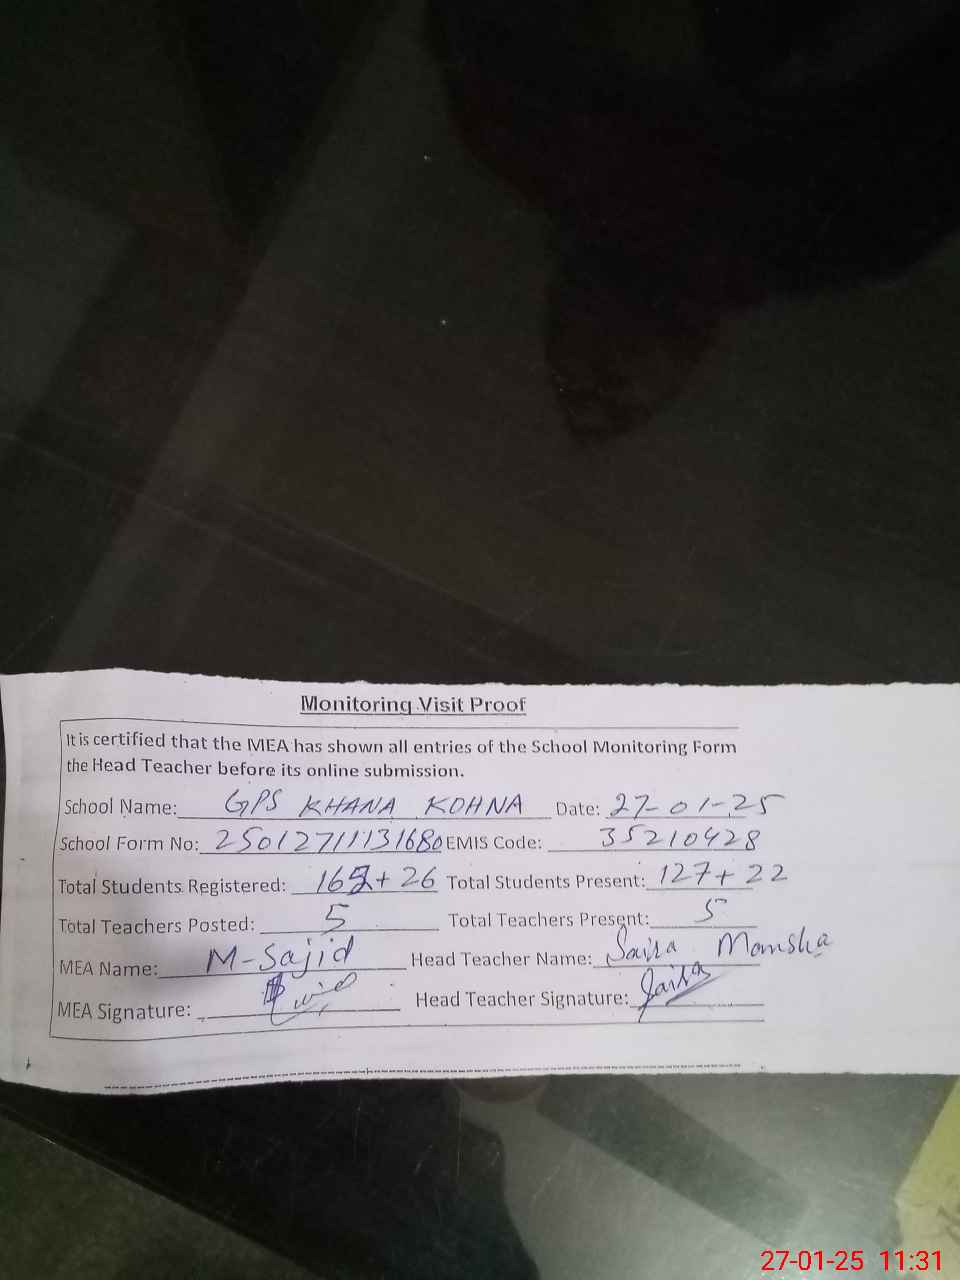 Monitoring Visit Proof
It is certified that the MEA has shown all entries of the School Monitoring Form
the Head Teacher before its online submission.
School Name: GPS KHANA KOHNA Date: 27-01-25
School Form No: 25012711131680 EMIS Code: 35210428
Total Students Registered: 162+ 26 Total Students Present: 127+ 22
Total Teachers Posted: 5 Total Teachers Present: 5
MEA Name: M-Sajid Head Teacher Name: Saira Mansha
MEA Signature: Head Teacher Signature: Saira
27-01-25 11:31